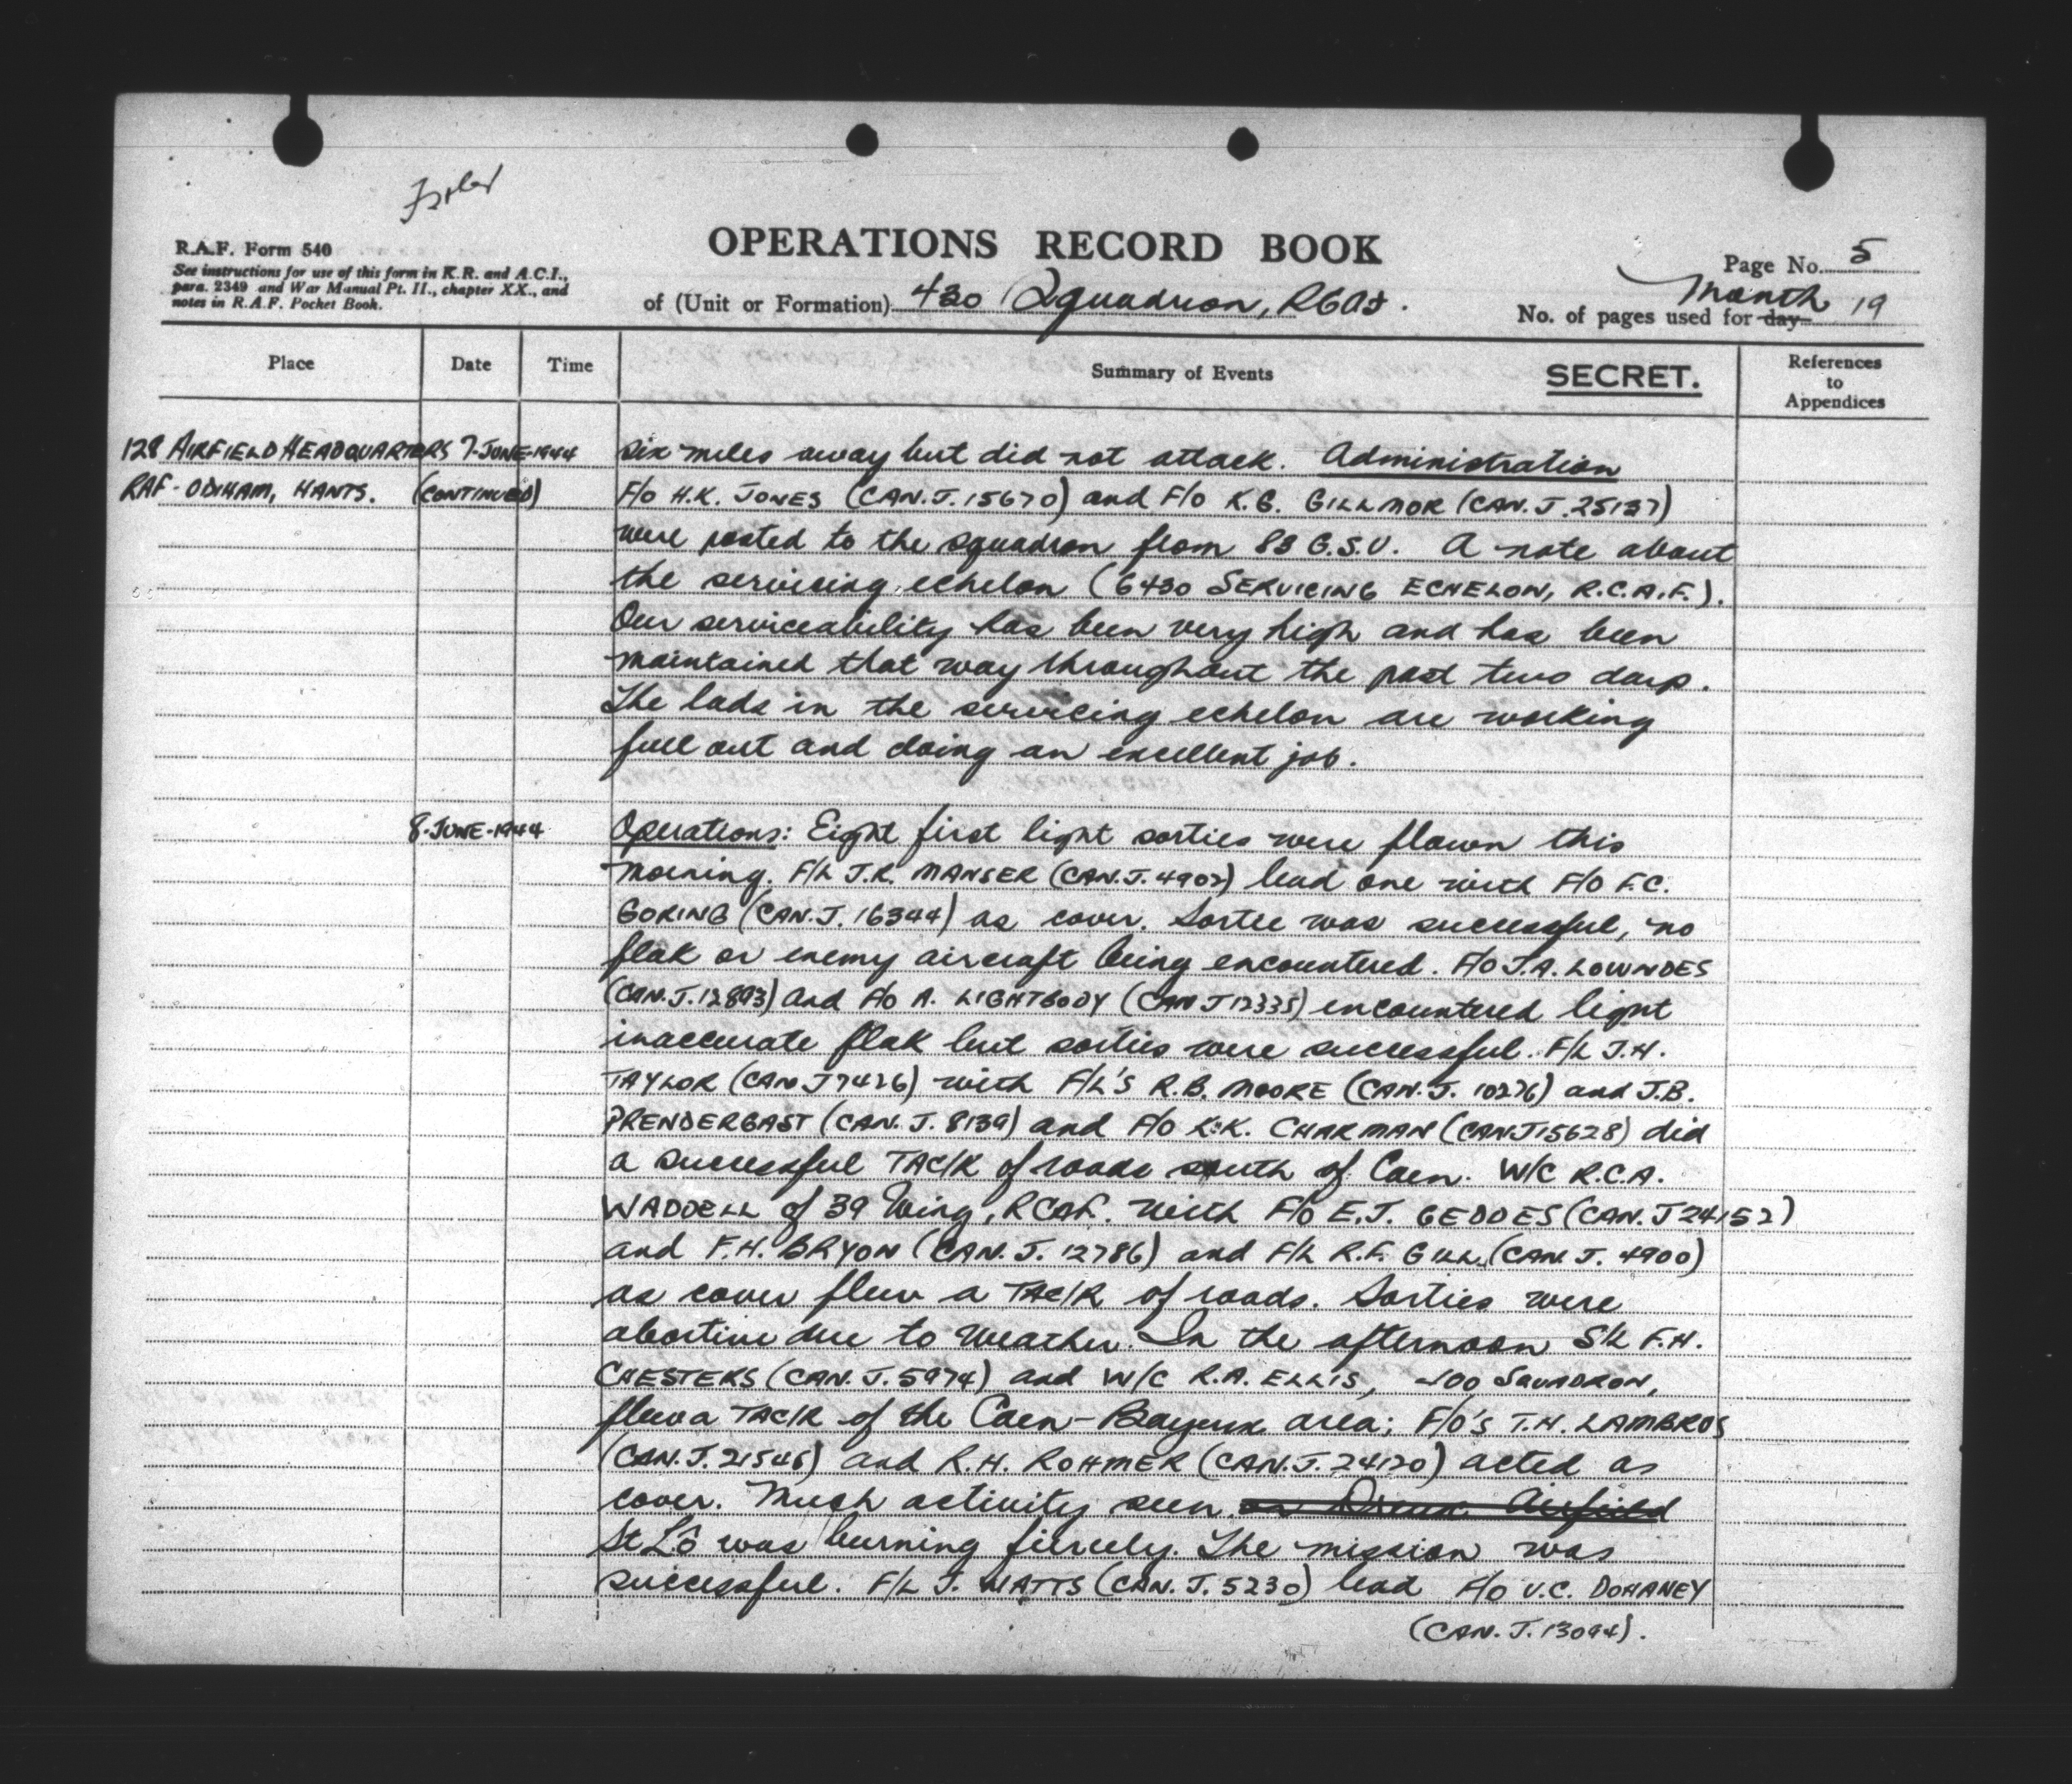 R.A.F. Form 540
See instructions for use of this form in K.R. and A.C.I.,
para. 2349 and War Manual Pt. II., chapter XX., and
notes in R.A.F. Pocket Book.
OPERATIONS RECORD BOOK
of (Unit or Formation) 430 Squadron, RCAF.
Page No. 5
No. of pages used for day Month 19
Place
Date
Time
Summary of Events
SECRET.
References
to
Appendices
128 AIRFIELD HEADQUARTERS 7-JUNE-1944 six miles away but did not attack. Administration
RAF-ODIHAM, HANTS. (CONTINUED) F/O H.K. JONES (CAN.J.15670) and F/O K.G. GILLMOR (CAN.J.25137)
were posted to the squadron from 83 G.S.U. A note about
the servicing echelon (6430 SERVICING ECHELON, R.C.A.F.).
Our serviceability has been very high and has been
maintained that way throughout the past two days.
The lads in the servicing echelon are working
full out and doing an excellent job.
8-JUNE-1944 Operations: Eight first light sorties were flown this
morning. F/L J.R. MANSER (CAN.J.4902) lead one with F/O F.C.
GORING (CAN.J.16344) as cover. Sortee was successful, no
flak or enemy aircraft being encountered. F/O J.A. LOWNDES
(CAN.J.12893) and F/O A. LIGHTBODY (CAN J12335) encountered light
inaccurate flak but sorties were successful. F/L J.H.
TAYLOR (CAN J7426) with F/L'S R.B. MOORE (CAN.J. 10276) and J.B.
PRENDERGAST (CAN.J.8139) and F/O K.K. CHARMAN (CAN J15628) did
a successful TAC/R of roads south of Caen. W/C R.C.A.
WADDELL of 39 Wing, RCAF. with F/O E.J. GEDDES (CAN.J24152)
and F.H. BRYON (CAN.J. 12786) and F/L R.F. GILL (CAN J. 4900)
as cover flew a TAC/R of roads. Sorties were
abortive due to weather. In the afternoon S/L F.H.
CHESTERS (CAN.J.5974) and W/C R.A. ELLIS, 400 SQUADRON,
flew a TAC/R of the Caen-Bayeux area; F/O'S T.H. LAMBROS
(CAN.J.21546) and R.H. ROHMER (CAN.J.24120) acted as
cover. Much activity seen on Dreux Airfield
St Lô was burning fiercely. The mission was
successful. F/L J. WATTS (CAN.J.5230) lead F/O V.C. DOHANEY
(CAN.J.13094).